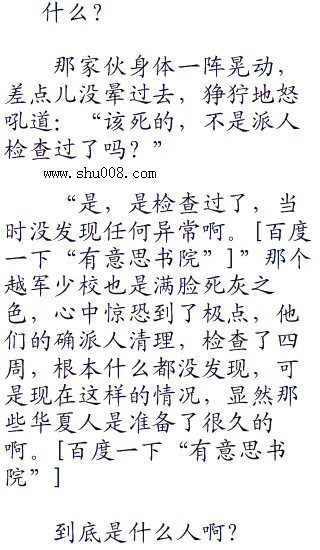 什么？
那家伙身体一阵晃动，
差点儿没晕过去，狰狞地怒
吼道：“该死的，不是派人
检查过了吗？”
www.shu008.com
“是，是检查过了，当
时没发现任何异常啊。[百度
一下“有意思书院”]”那个
越军少校也是满脸死灰之
色，心中惊恐到了极点，他
们的确派人清理，检查了四
周，根本什么都没发现，可
是现在这样的情况，显然那
些华夏人是准备了很久的
啊。[百度一下“有意思书
院”]
到底是什么人啊？